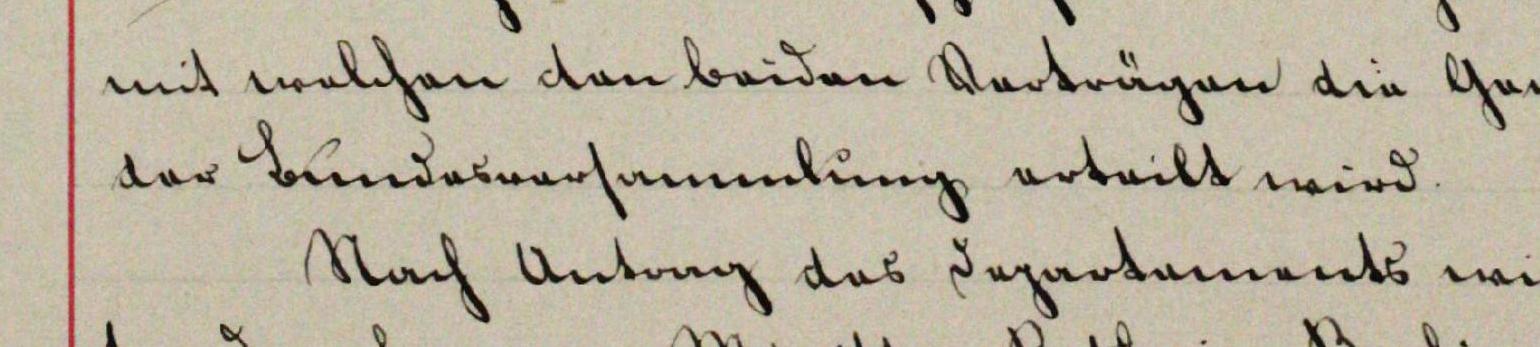 mit welchen den beiden Verträgen die
der Bundesversammlung erteilt wird.
Nach Antrag des Departements